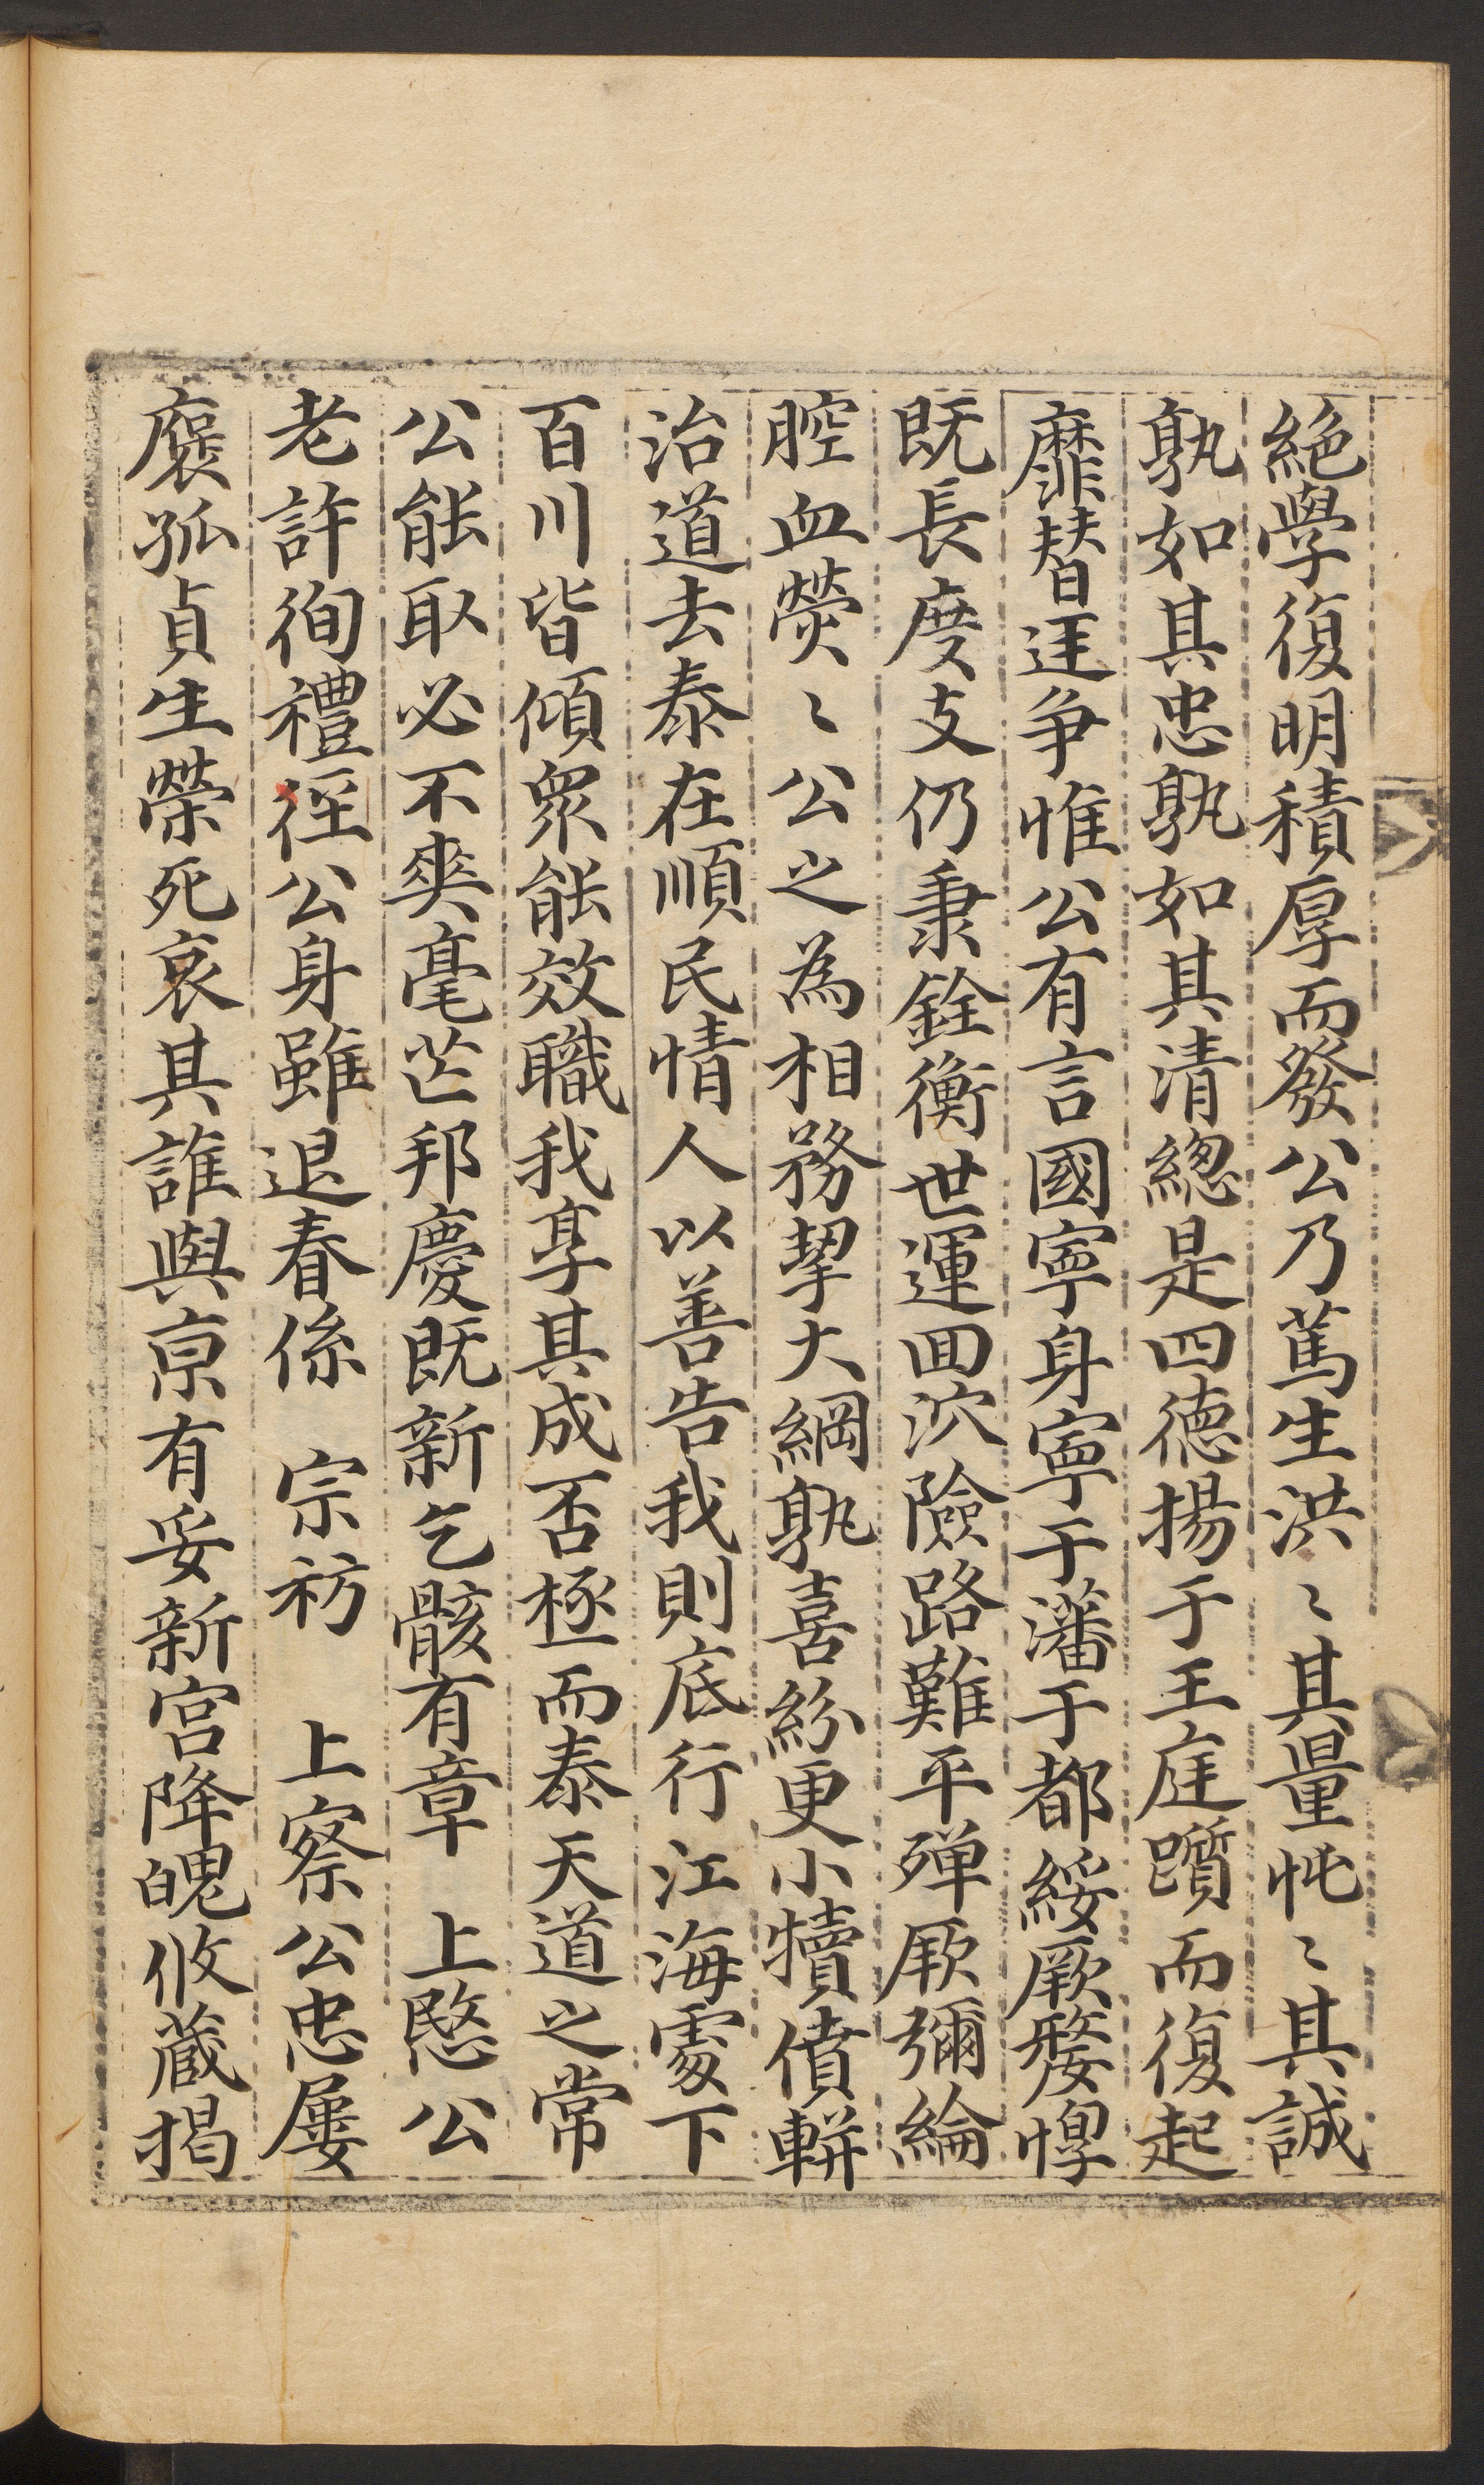 絶學復明積厚而發公乃篤生洪〻其量忳〻其誠
孰如其忠孰如其清緫是四德揚于王庭躓而復起
靡替廷爭惟公有言國寧身寧于藩于都綏厥嫠惸
既長度支仍秉銓衡世運回泬險路難平殫厥彌綸
腔血熒〻公之為相務挈大綱孰喜紛更小犢僨輧
治道去泰在順民情人以善告我則底行江海處下
百川皆傾衆能效職我享其成否極而泰天道之常
公能取必不爽毫芒邦慶既新乞骸有章 上愍公
老許徇禮徑公身雖退眷係 宗祊 上察公忠屢
褒孤貞生榮死哀其誰與京有妥新宮降魄攸藏揭